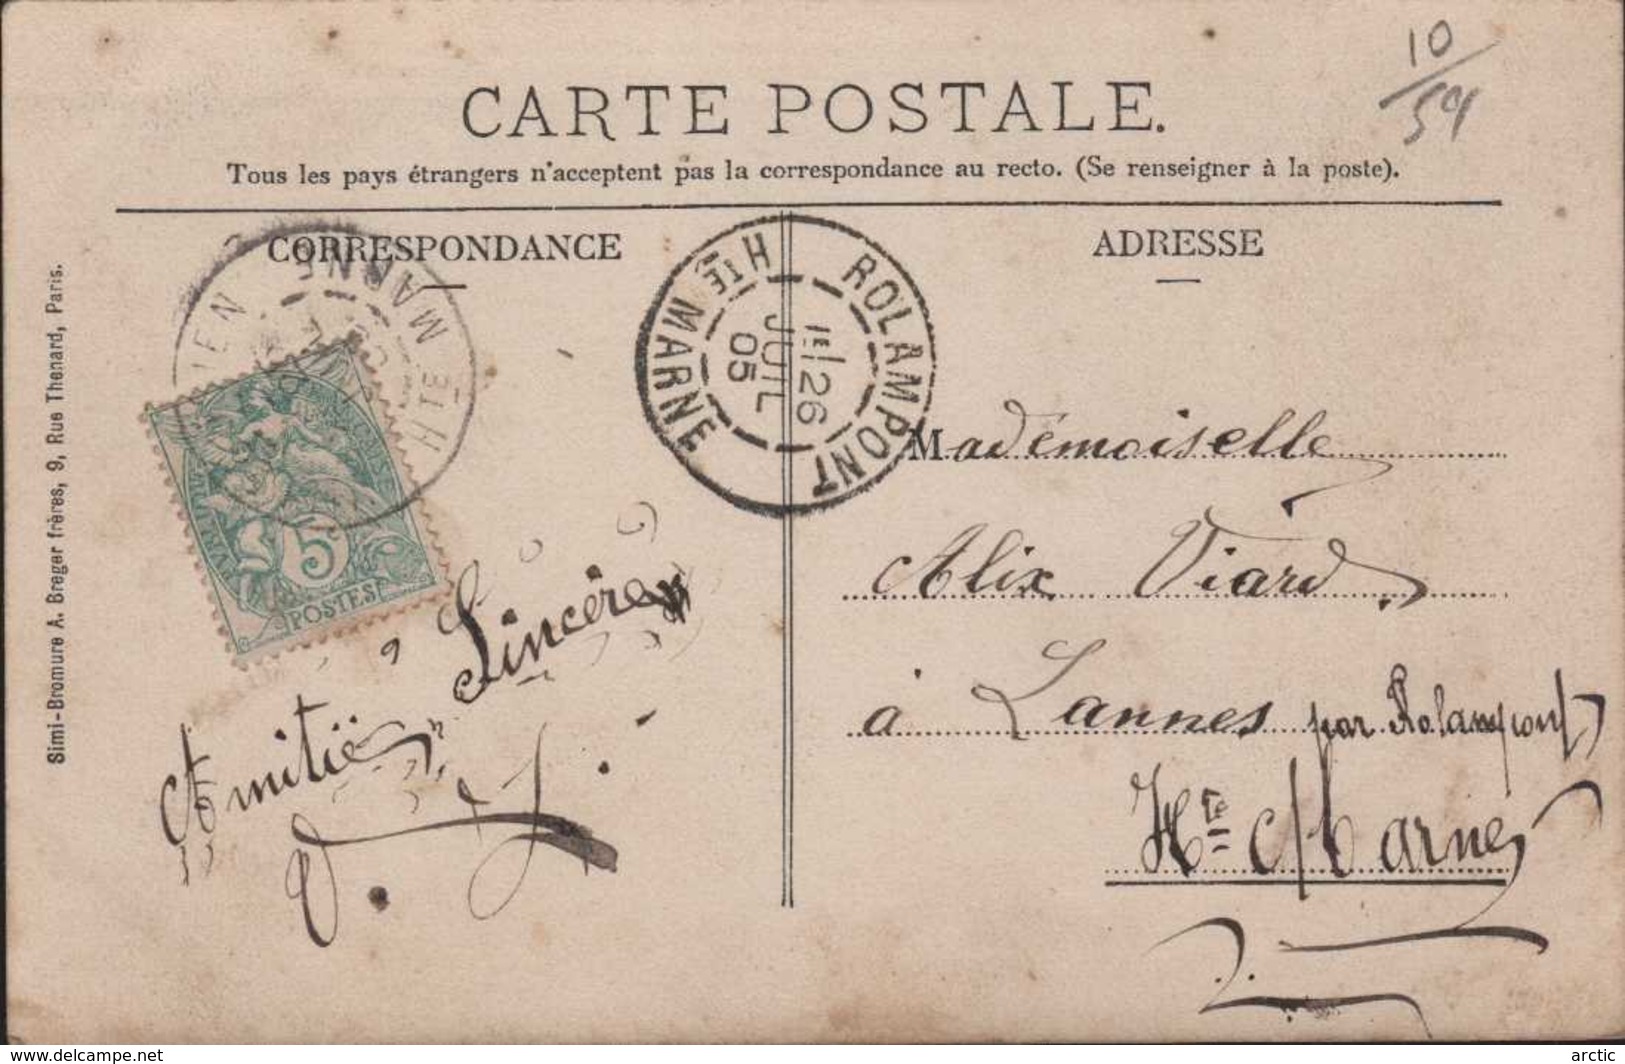 10/54
CARTE POSTALE.
Tous les pays étrangers n'acceptent pas la correspondance au recto. (Se renseigner à la poste).
CORRESPONDANCE
ADRESSE
Simi-Bromure A. Breger frères, 9, Rue Thenard, Paris.
IEN
HTE MARNE
ROLAMPONT
1E/26
JUIL
05
HTE MARNE
5
POSTES
Amitié Sincère
Mademoiselle
Alix Viard
à Lannes par Rolampont
Hte Marne
www.delcampe.net
arctic